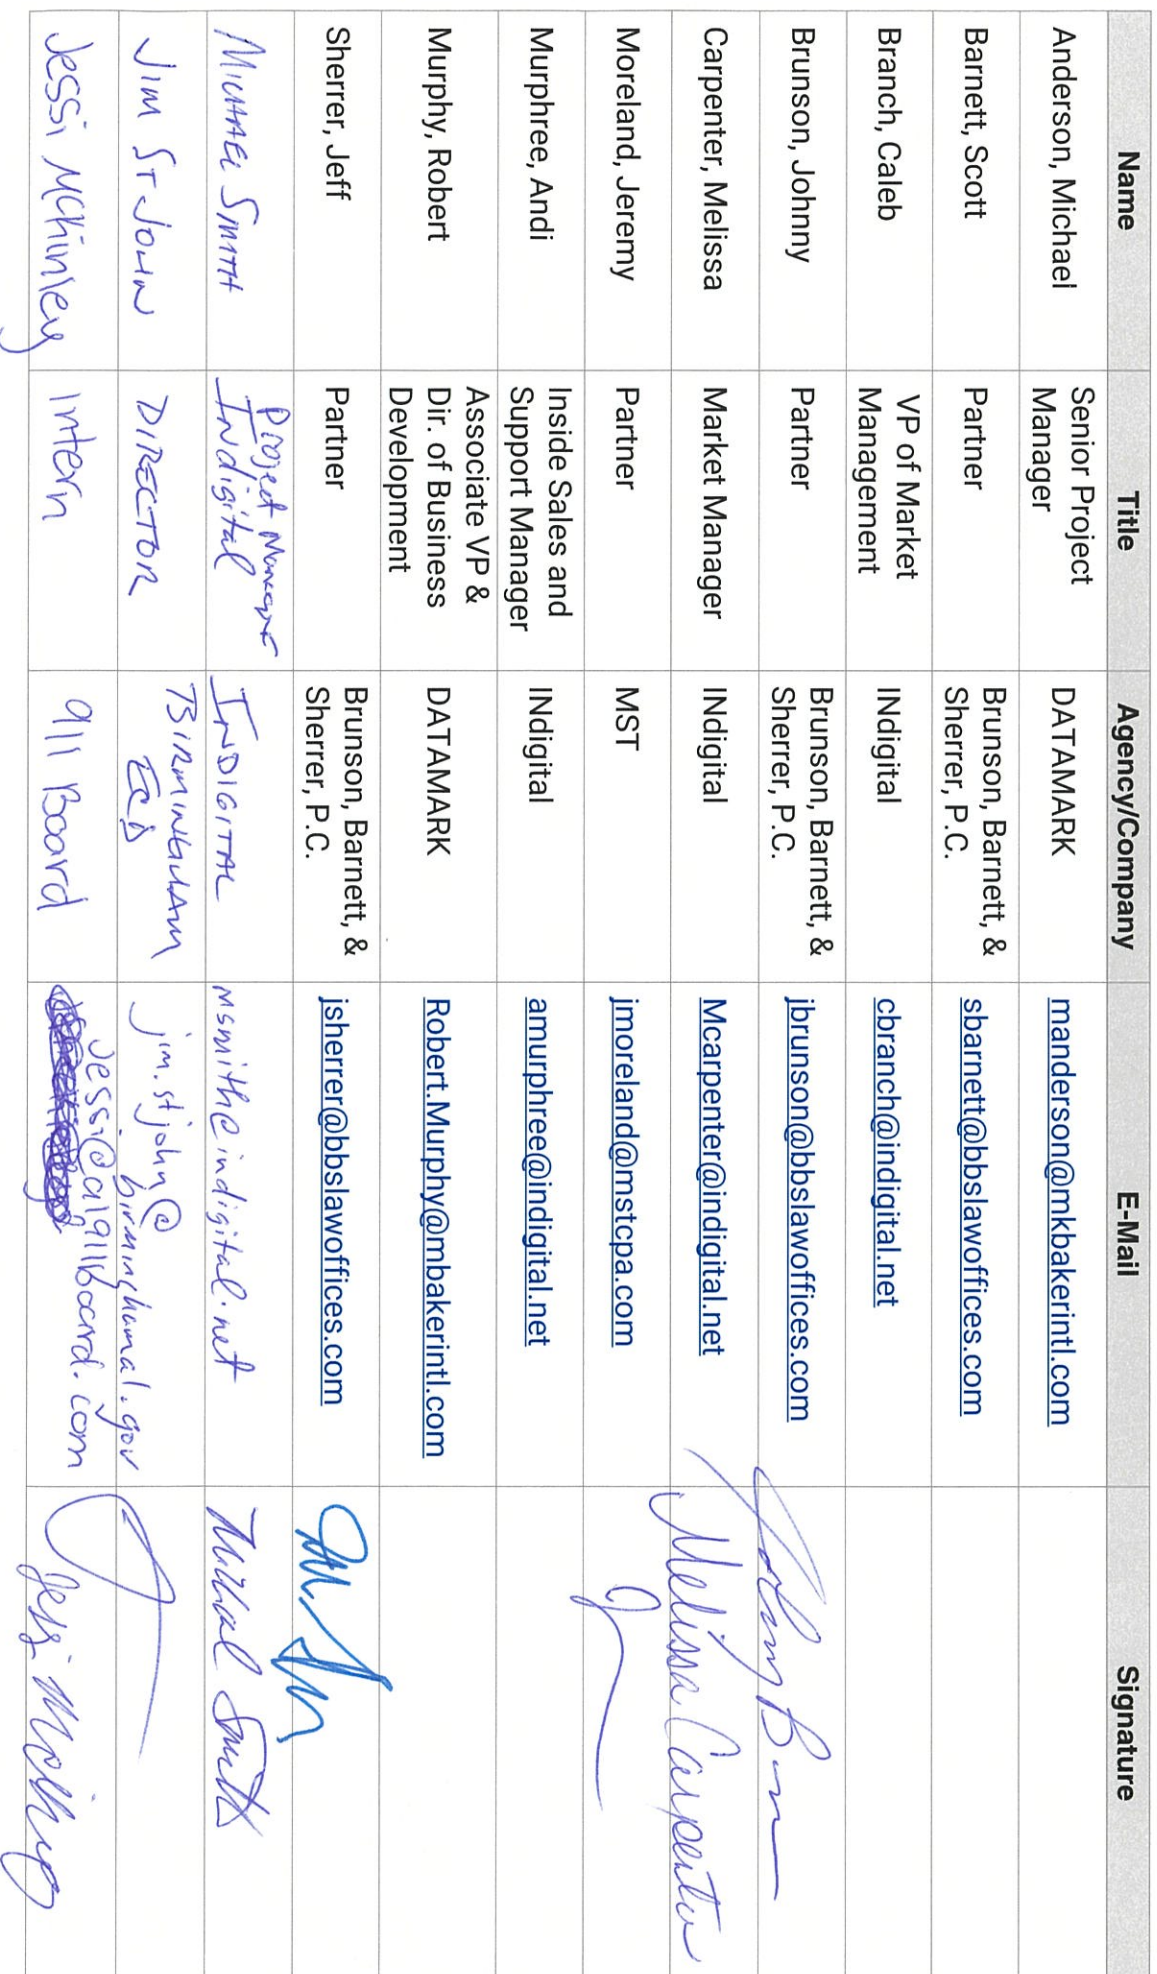 Name Title Agency/Company E-Mail Signature
Anderson, Michael Senior Project Manager DATAMARK manderson@mkbakerintl.com
Barnett, Scott Partner Brunson, Barnett, & Sherrer, P.C. sbarnett@bbslawoffices.com
Branch, Caleb VP of Market Management INdigital cbranch@indigital.net
Brunson, Johnny Partner Brunson, Barnett, & Sherrer, P.C. jbrunson@bbslawoffices.com Johnny
Carpenter, Melissa Market Manager INdigital Mcarpenter@indigital.net Melissa Carpenter
Moreland, Jeremy Partner MST jmoreland@mstcpa.com
Murphree, Andi Inside Sales and Support Manager INdigital amurphree@indigital.net
Murphy, Robert Associate VP & Dir. of Business Development DATAMARK Robert.Murphy@mbakerintl.com
Sherrer, Jeff Partner Brunson, Barnett, & Sherrer, P.C. jsherrer@bbslawoffices.com
MICHAEL SMITH Project Manager Indigital INDIGITAL msmith@indigital.net Michael Smith
JIM ST JOHN DIRECTOR BIRMINGHAM ECD jim.stjohn@birminghamal.gov
Jessi McKinley Intern 911 Board jessi@al911board.com Jessi McKinley